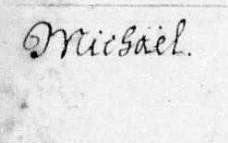 Michaël.